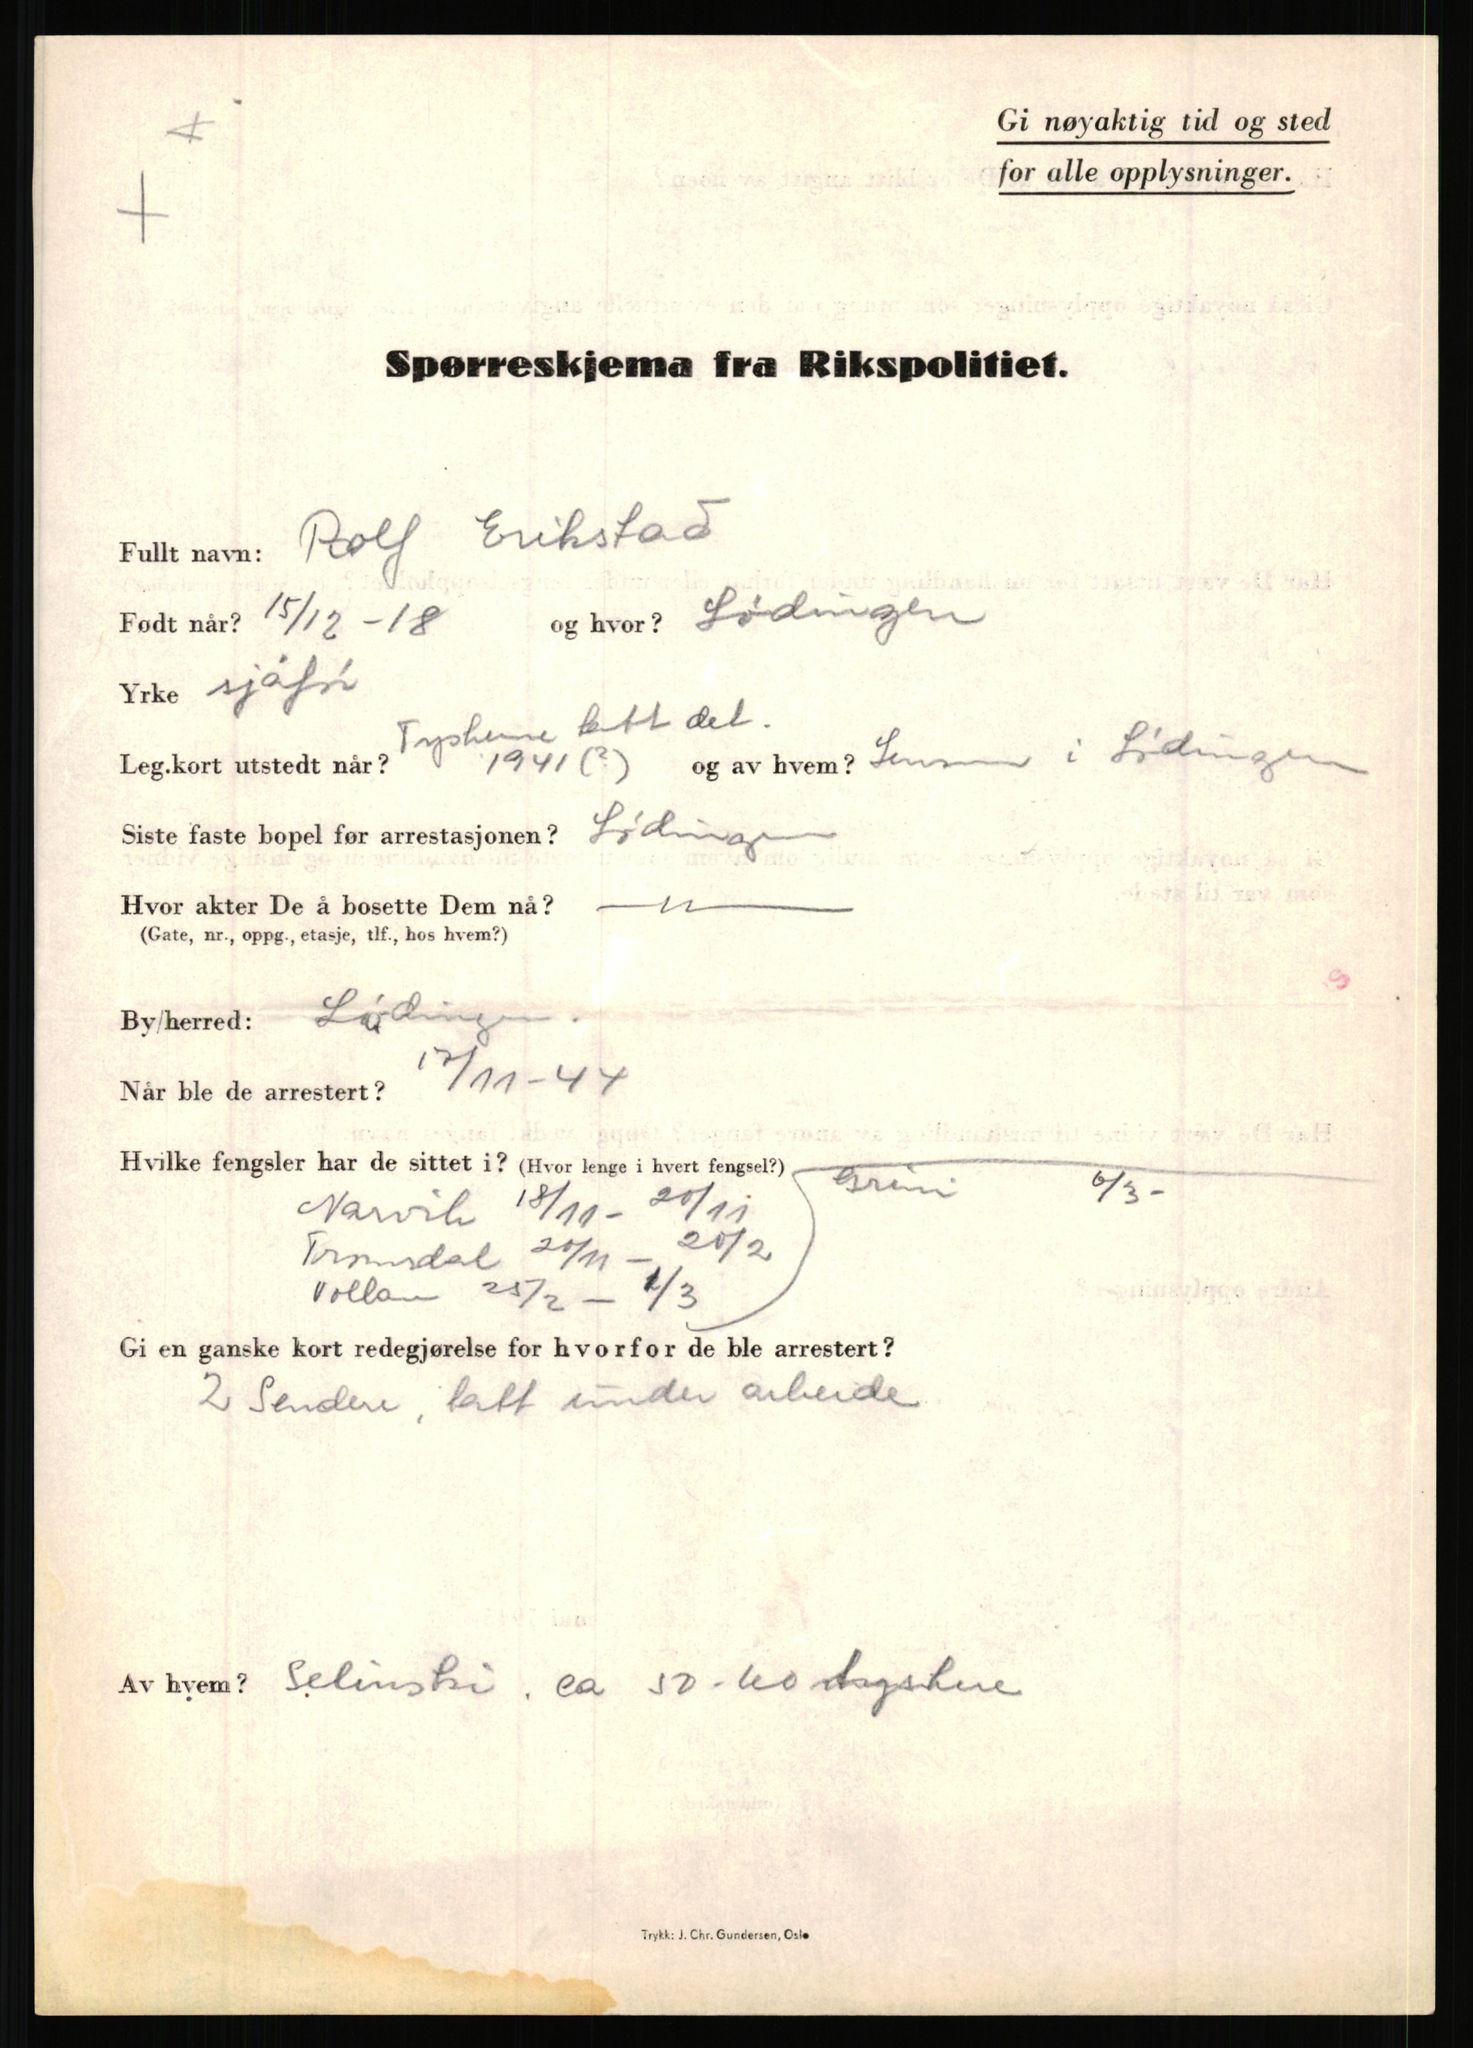 Gi nøyaktig tid og sted
for alle opplysninger.
Spørreskjema fra Rikspolitiet.
Fullt navn: Rolf Erikstad
Født når? 15/12-18 og hvor? Lødingen
Yrke sjåfør
Tyskerne tatt det.
Leg.kort utstedt når? 1941 (?) og av hvem? Lensm i Lødingen
Siste faste bopel før arrestasjonen? Lødingen
Hvor akter De å bosette Dem nå? — " —
(Gate, nr., oppg., etasje, tlf., hos hvem?)
By/herred: Lødingen.
Når ble de arrestert? 17/11-44
Hvilke fengsler har de sittet i? (Hvor lenge i hvert fengsel?) Grini 6/3-
Narvik 18/11 - 20/11
Tromsdal 20/11 - 20/2
Vollan 25/2 - 1/3
Gi en ganske kort redegjørelse for hvorfor de ble arrestert?
2 Sendere, tatt under arbeide
Av hvem? Selinski. ca 30-40 tyskere
Trykk: J. Chr. Gundersen, Oslo